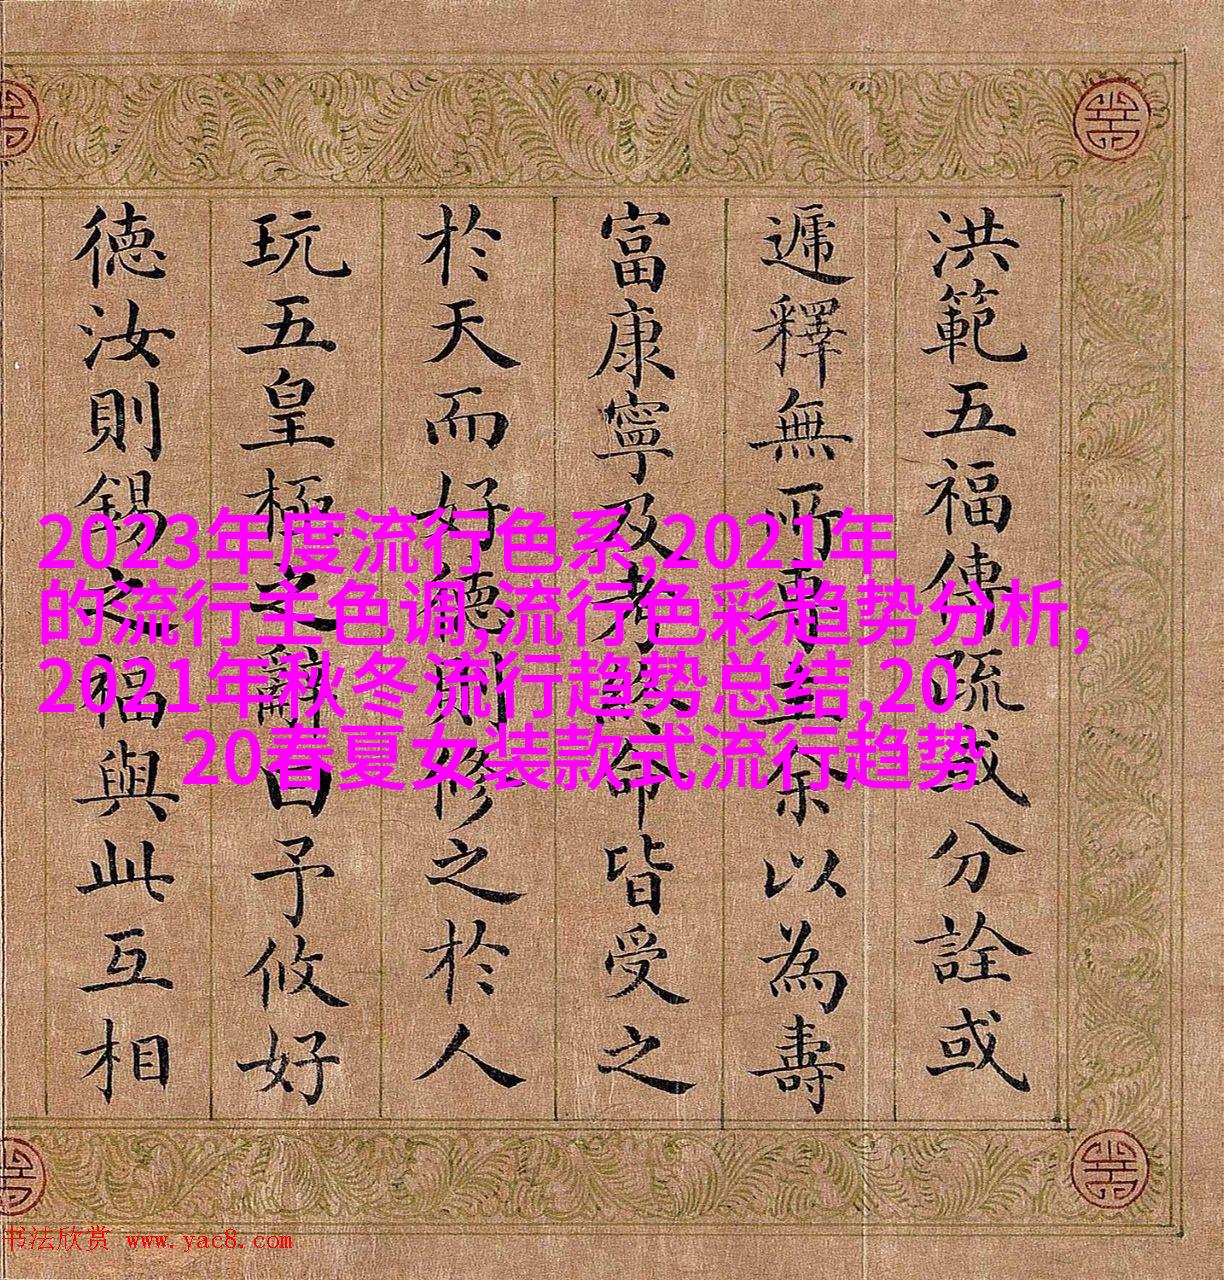 洪範五福傳疏或分詮或
遞釋無所專主余以為壽
富康寧及考終命皆受之
於天而好德則修之於人
玩五皇極之辭曰予攸好
德汝則錫之福與此互相
2023年度流行色系,2021年
的流行主色调,流行色彩趋势分析,
2021年秋冬流行趋势总结,20
20春夏女装款式流行趋势
书法欣赏 www.yac8.com